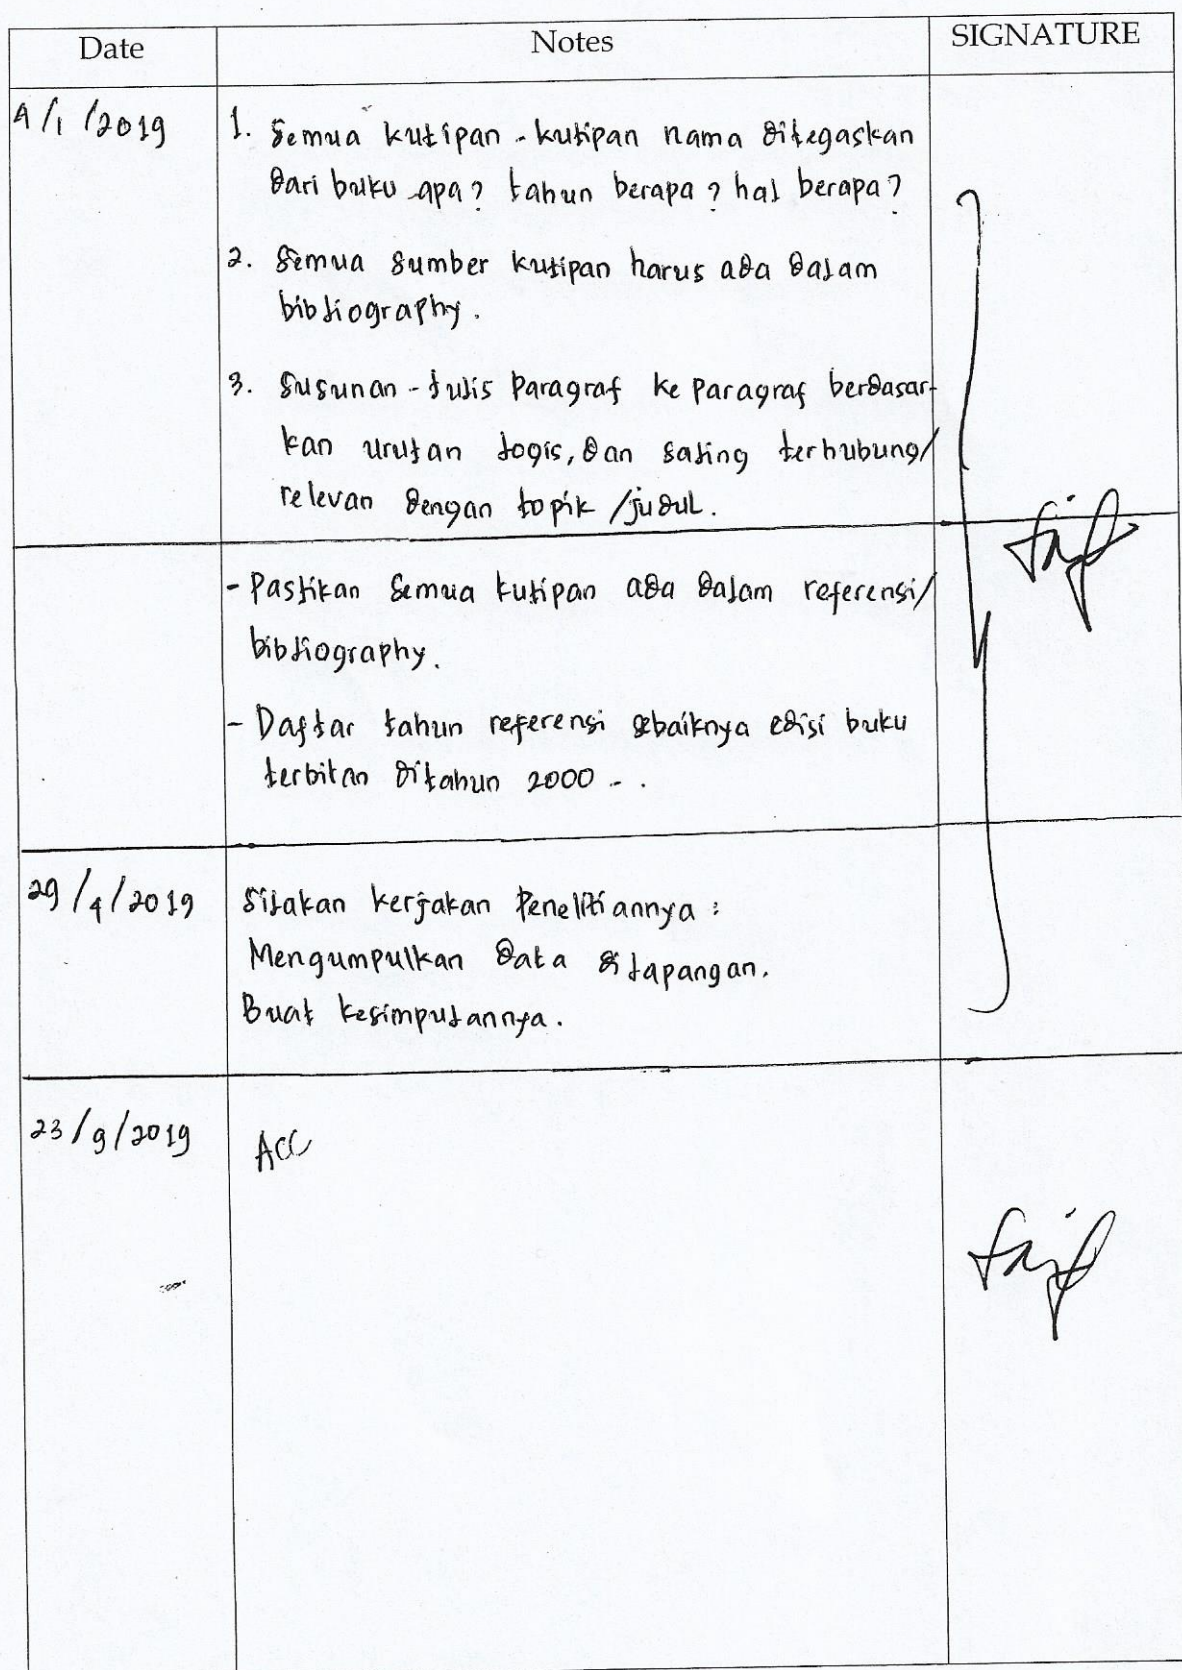 Date Notes SIGNATURE
4/1/2019 1. Semua kutipan - kutipan nama ditegaskan
dari buku apa? tahun berapa? hal berapa?
2. Semua sumber kutipan harus ada dalam
bibliography.
3. Susunan - tulis Paragraf ke Paragraf berdasar-
kan urutan logis, dan saling terhubung/
relevan dengan topik /judul.
- Pastikan semua kutipan ada dalam referensi/
bibliography.
- Daftar tahun referensi sebaiknya edisi buku
terbitan ditahun 2000 - .
29/4/2019 Silakan kerjakan Penelitiannya :
Mengumpulkan Data di lapangan.
Buat kesimpulannya.
23/9/2019 ACC